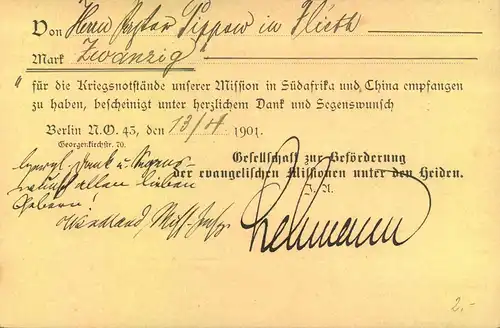 Von Herrn Pastor Lippow in Flieth
Mark Zwanzig
für die Kriegsnotstände unserer Mission in Südafrika und China empfangen
zu haben, bescheinigt unter herzlichem Dank und Segenswunsch
Berlin N.O. 43, den 13/4 1901.
Georgenkirchstr. 70.
Gesellschaft zur Beförderung
der evangelischen Missionen unter den Heiden.
I. A.
Herzl. Dank u. Segens
wunsch allen lieben
Gebern!
Wendland, Miss.
Lehmann
2.-